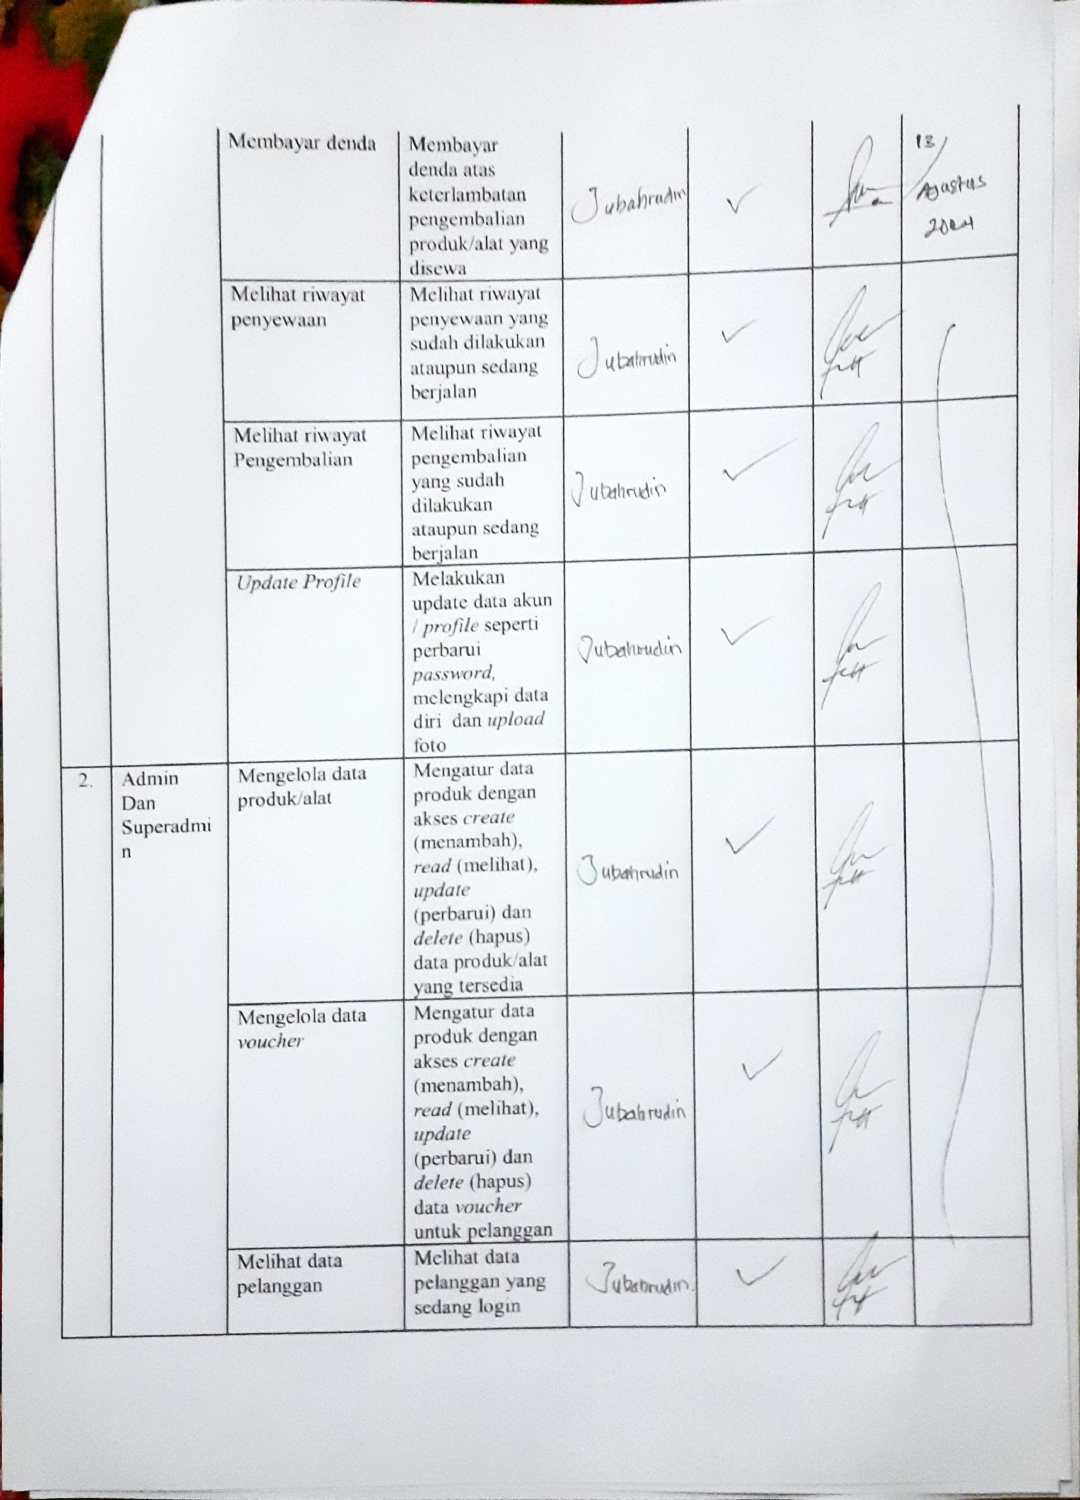 Membayar denda
Membayar
denda atas
keterlambatan
pengembalian
produk/alat yang
disewa
Jubahrudin
✓
13/
Agustus
2024
Melihat riwayat
penyewaan
Melihat riwayat
penyewaan yang
sudah dilakukan
ataupun sedang
berjalan
Jubahrudin
✓
Melihat riwayat
Pengembalian
Melihat riwayat
pengembalian
yang sudah
dilakukan
ataupun sedang
berjalan
Jubahrudin
✓
Update Profile
Melakukan
update data akun
/ profile seperti
perbarui
password,
melengkapi data
diri dan upload
foto
Jubahrudin
✓
2.
Admin
Dan
Superadmi
n
Mengelola data
produk/alat
Mengatur data
produk dengan
akses create
(menambah),
read (melihat),
update
(perbarui) dan
delete (hapus)
data produk/alat
yang tersedia
Jubahrudin
✓
Mengelola data
voucher
Mengatur data
produk dengan
akses create
(menambah),
read (melihat),
update
(perbarui) dan
delete (hapus)
data voucher
untuk pelanggan
Jubahrudin
✓
Melihat data
pelanggan
Melihat data
pelanggan yang
sedang login
Jubahrudin
✓